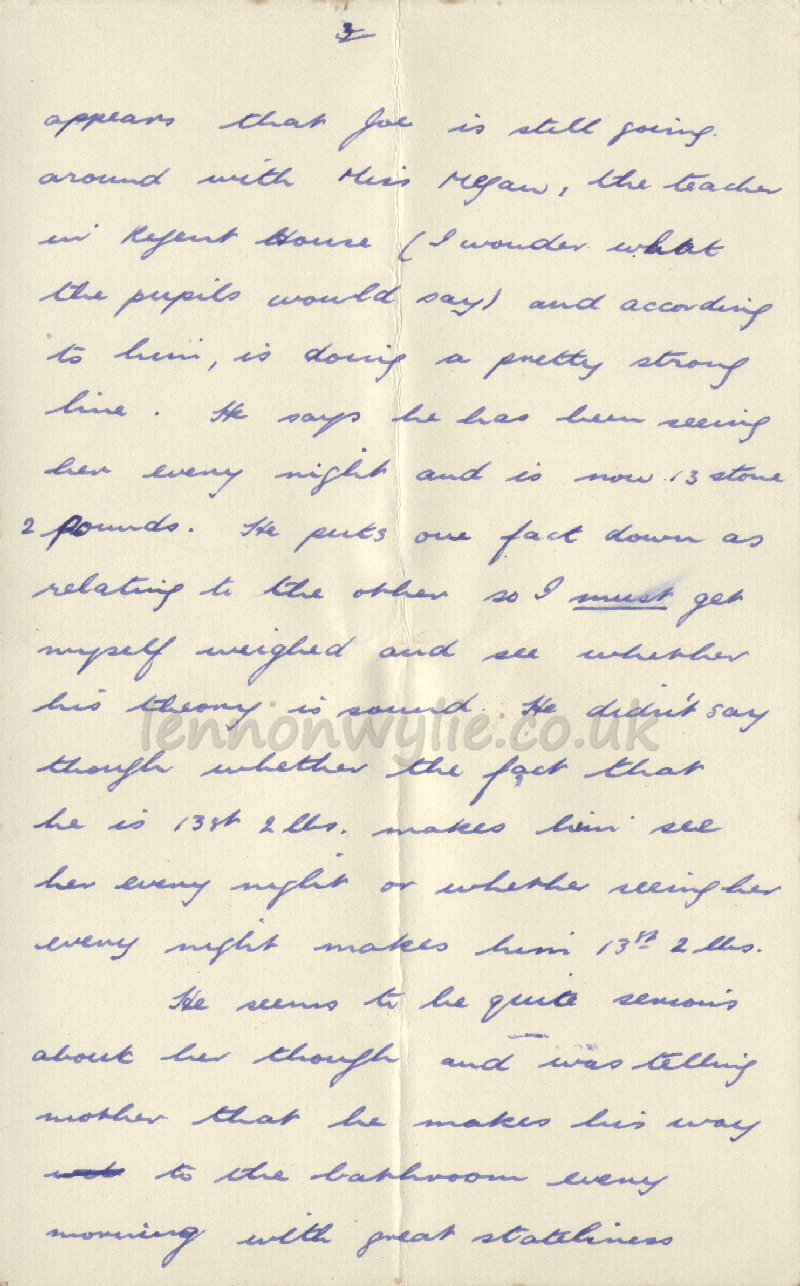 3
appears that Joe is still going
around with Miss Megaw, the teacher
in Regent House (I wonder what
the pupils would say) and according
to him, is doing a pretty strong
line. He says he has been seeing
her every night and is now 13 stone
2 pounds. He puts one fact down as
relating to the other so I must get
myself weighed and see whether
his theory is sound. He didn't say
lennonwylie.co.uk
though whether the fact that
he is 13st 2 lbs. makes him see
her every night or whether seeing her
every night makes him 13st 2 lbs.
He seems to be quite serious
about her though and was telling
mother that he makes his way
to the bathroom every
morning with great stateliness